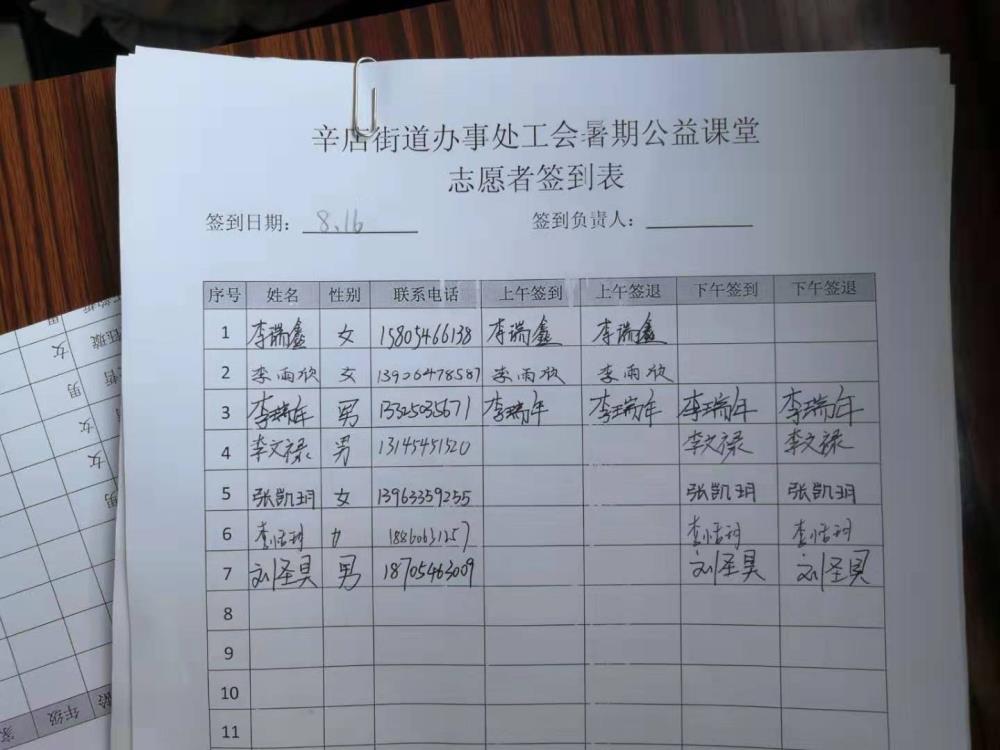 辛店街道办事处工会暑期公益课堂
志愿者签到表
签到日期： 8.16 签到负责人：
序号 姓名 性别 联系电话 上午签到 上午签退 下午签到 下午签退
1 李瑞鑫 女 15805466138 李瑞鑫 李瑞鑫
2 李雨欣 女 13906478587 李雨欣 李雨欣
3 李瑞年 男 13325035671 李瑞年 李瑞年 李瑞年 李瑞年
4 李文禄 男 13145451520 李文禄 李文禄
5 张凯玥 女 13963359255 张凯玥 张凯玥
6 李恬羽 女 18860631257 李恬羽 李恬羽
7 刘圣昊 男 18705463009 刘圣昊 刘圣昊
8
9
10
11
男
女
男
女
女
男
年级